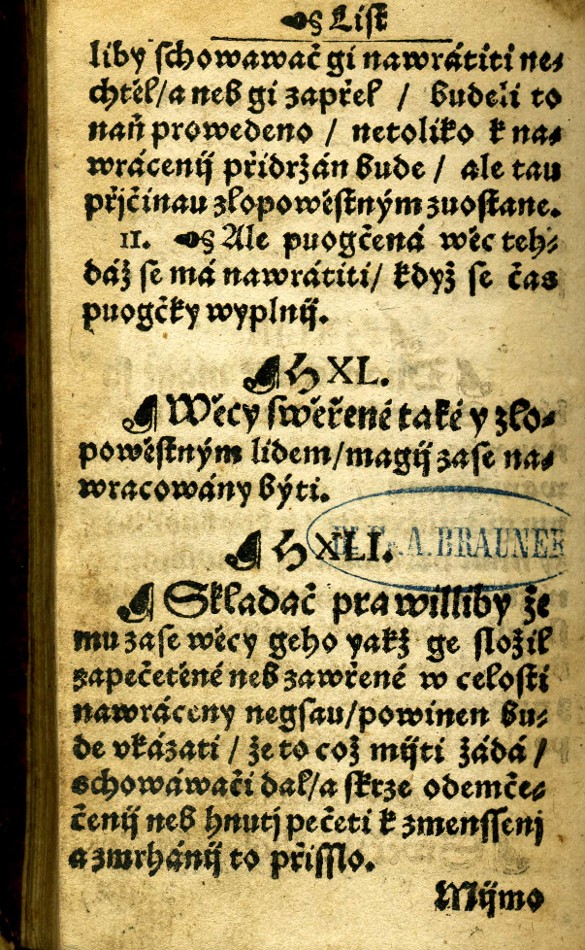 ☙§ List
liby schowawač gi nawrátiti ne⸗
chtěl/a neb gi zapřel / budeli to
naň prowedeno / netoliko k na⸗
wrácenij přidržán bude / ale tau
přjčinau zlopowěstným zuostane.
II. ☙§ Ale puogčená wěc teh⸗
dáž se má nawrátiti/ když se čas
puogčky wyplnij.
XL.
Wěcy swěřené také y zlo⸗
powěstným lidem/magij zase na⸗
wracowány býti.
XLI.
A. BRAUNER
Skladač prawilliby že
mu zase wěcy geho yakž ge složil
zapečetěné neb zawřené w celosti
nawráceny negsau/powinen bu⸗
de vkázati / že to což mijti žádá /
schowáwači dal/a skrze odemče⸗
čenij neb hnutj pečeti k zmenssenj
a zmrhánij to přisslo.
Mijmo